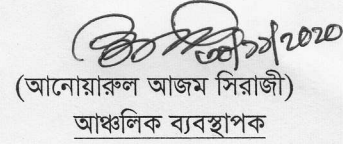 (আনোয়ারুল আজম সিরাজী)
আঞ্চলিক ব্যবস্থাপক